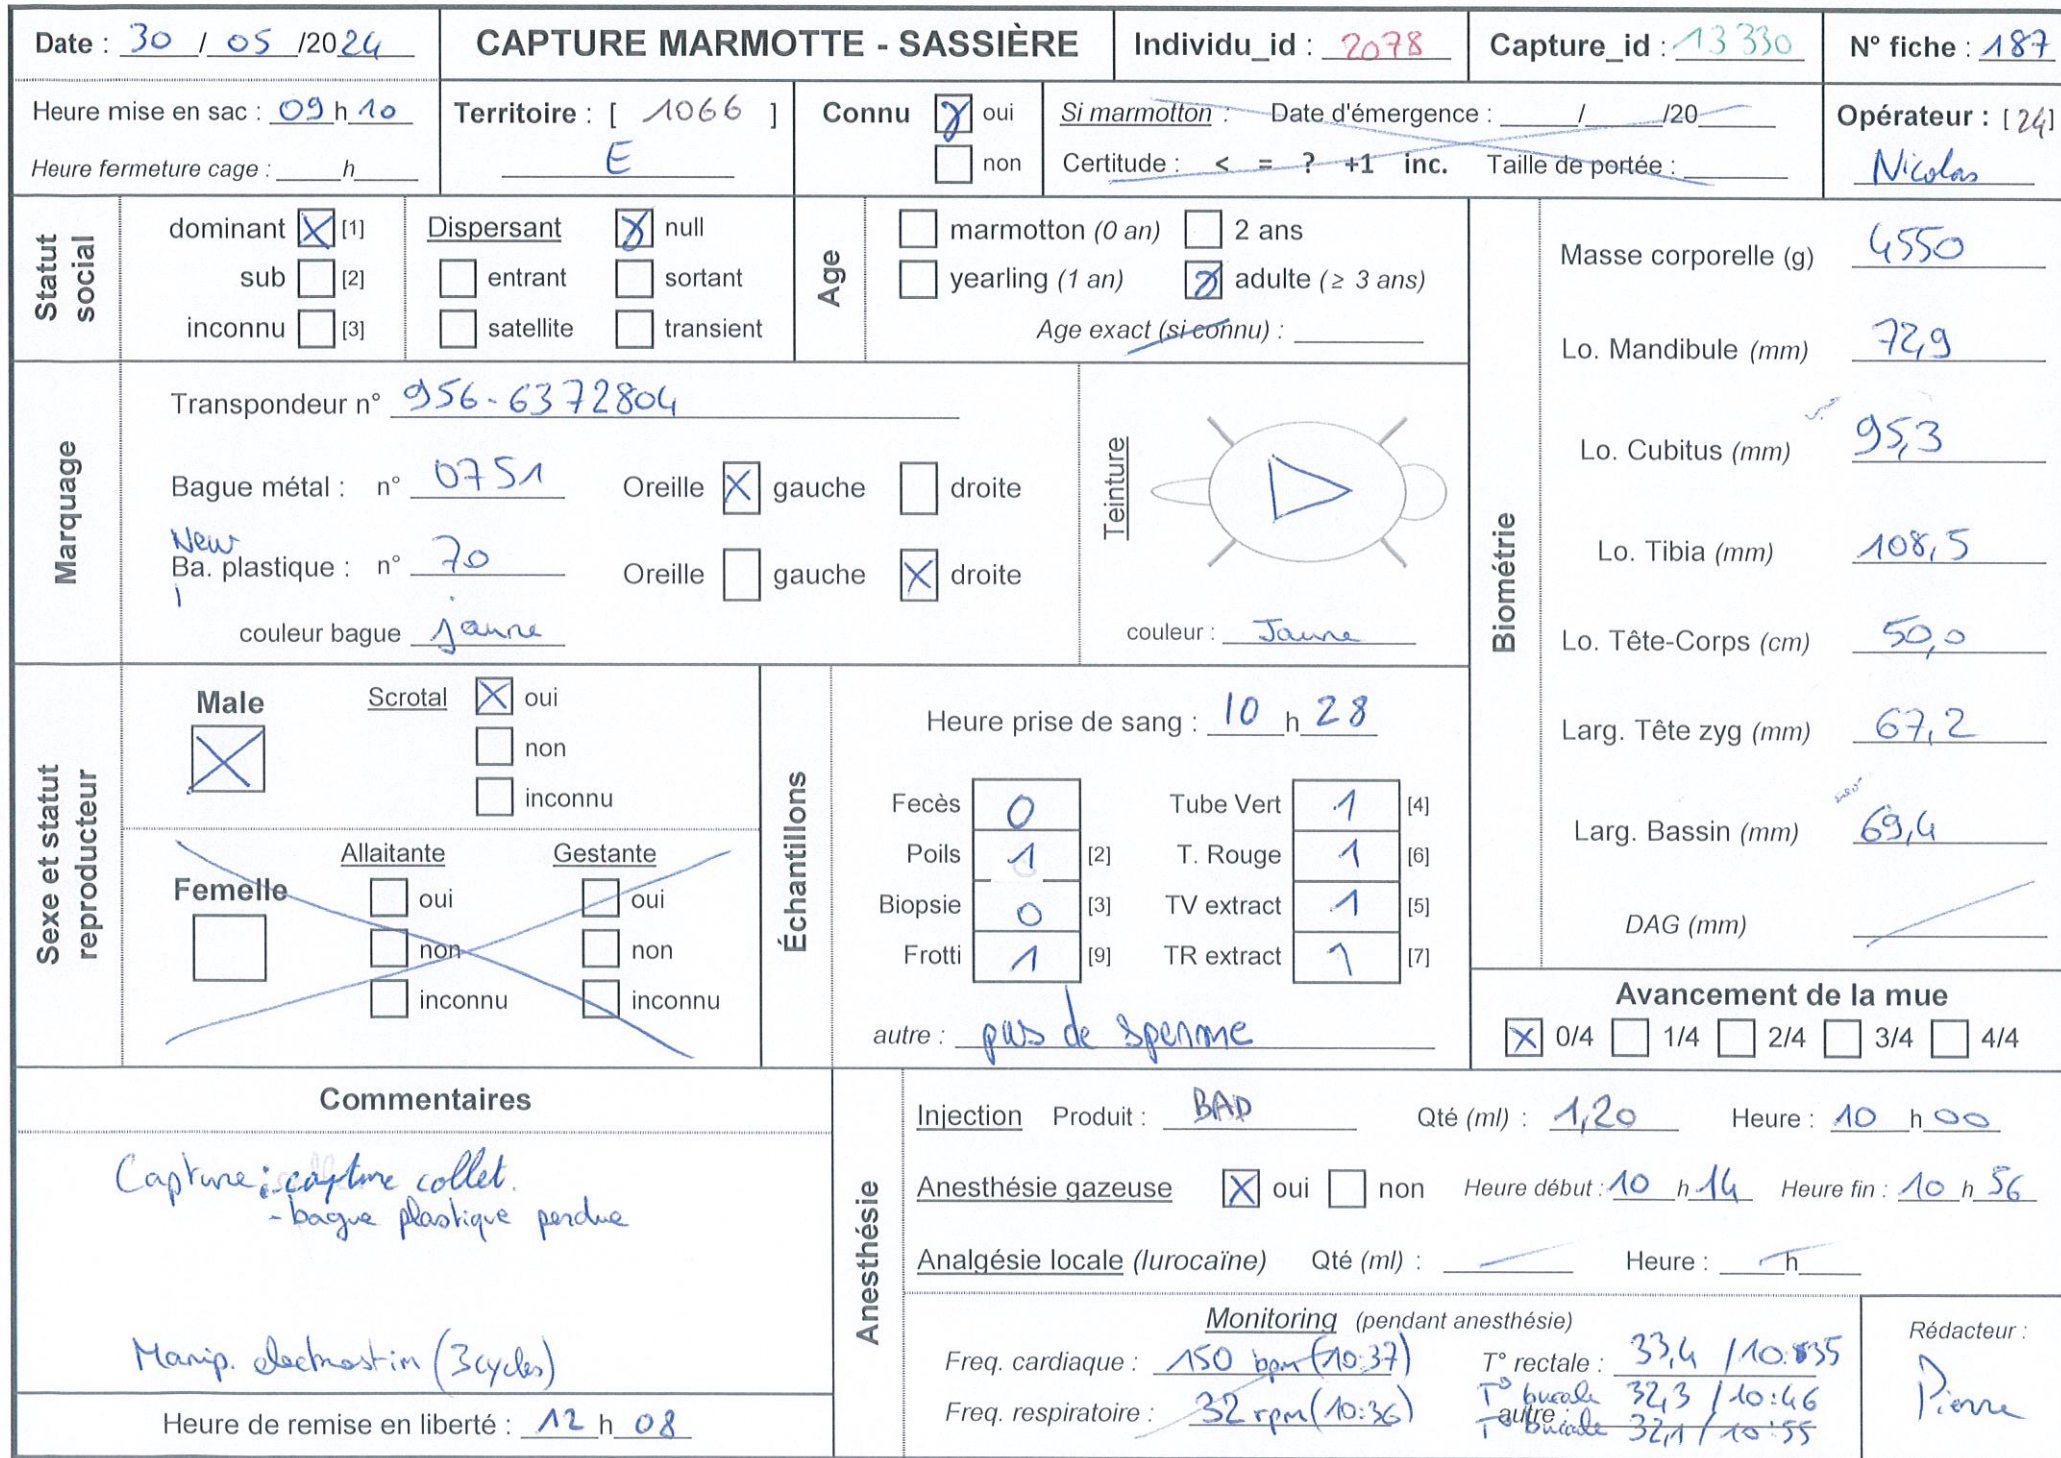 Date : 30 / 05 /2024
CAPTURE MARMOTTE - SASSIÈRE
Individu_id : 2078
Capture_id : 13 330
N° fiche : 187
Heure mise en sac : 09 h 10
Heure fermeture cage : h
Territoire : [ 1066 ]
E
Connu oui
non
Si marmotton : Date d'émergence : / /20
Certitude : < = ? +1 inc. Taille de portée :
Opérateur : [24]
Nicolas
Statut social
dominant [1]
sub [2]
inconnu [3]
Dispersant null
entrant sortant
satellite transient
Age
marmotton (0 an) 2 ans
yearling (1 an) adulte (≥ 3 ans)
Age exact (si connu) :
Marquage
Transpondeur n° 956-6372804
Bague métal : n° 0751 Oreille gauche droite
New
Ba. plastique : n° 70 Oreille gauche droite
couleur bague jaune
Teinture
couleur : Jaune
Biométrie
Masse corporelle (g) 4550
Lo. Mandibule (mm) 72,9
Lo. Cubitus (mm) 95,3
Lo. Tibia (mm) 108,5
Lo. Tête-Corps (cm) 50,0
Larg. Tête zyg (mm) 67,2
Larg. Bassin (mm) 69,4
DAG (mm)
Sexe et statut reproducteur
Male
Scrotal oui
non
inconnu
Femelle
Allaitante Gestante
oui oui
non non
inconnu inconnu
Échantillons
Heure prise de sang : 10 h 28
Fecès 0 Tube Vert 1 [4]
Poils 1 [2] T. Rouge 1 [6]
Biopsie 0 [3] TV extract 1 [5]
Frotti 1 [9] TR extract 1 [7]
autre : pas de sperme
Avancement de la mue
0/4 1/4 2/4 3/4 4/4
Commentaires
Capture : capture collet.
- bague plastique perdue
Manip. electrostim (3 cycles)
Heure de remise en liberté : 12 h 08
Anesthésie
Injection Produit : BAD Qté (ml) : 1,20 Heure : 10 h 00
Anesthésie gazeuse oui non Heure début : 10 h 14 Heure fin : 10 h 56
Analgésie locale (lurocaïne) Qté (ml) : Heure : h
Monitoring (pendant anesthésie)
Freq. cardiaque : 150 bpm (10:37)
T° rectale : 33,4 / 10:35
Freq. respiratoire : 32 rpm (10:36)
T° bucale 32,3 / 10:46
autre :
T° bucale 32,1 / 10:55
Rédacteur :
Pierre